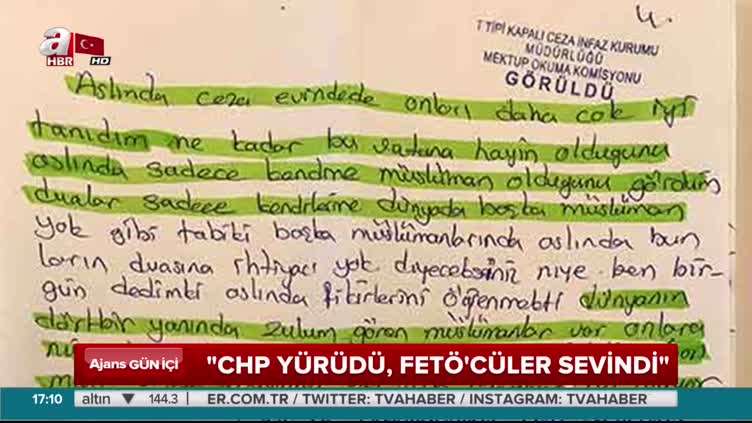 a
HBR
HD
4.
T TİPİ KAPALI CEZA İNFAZ KURUMU
MÜDÜRLÜĞÜ
MEKTUP OKUMA KOMİSYONU
GÖRÜLDÜ
Aslında ceza evindede onları daha çok iyi
tanıdım ne kadar bu vatana hayin olduğunu
aslında sadece kendine müslüman olduğunu gördüm
dualar sadece kendilerine dünyada başka müslüman
yok gibi tabiki başka müslümanlarında aslında bun
ların duasına ihtiyacı yok diyeceksiniz niye ben bir-
gün dedimki aslında fikirlerini öğrenmekti dünyanın
dörtbir yanında zulum gören müslümanlar var onlara
Ajans GÜN İÇİ
"CHP YÜRÜDÜ, FETÖ'CÜLER SEVİNDİ"
17:10 altın ▼ 144.3 ER.COM.TR / TWITTER: TVAHABER / INSTAGRAM: TVAHABER